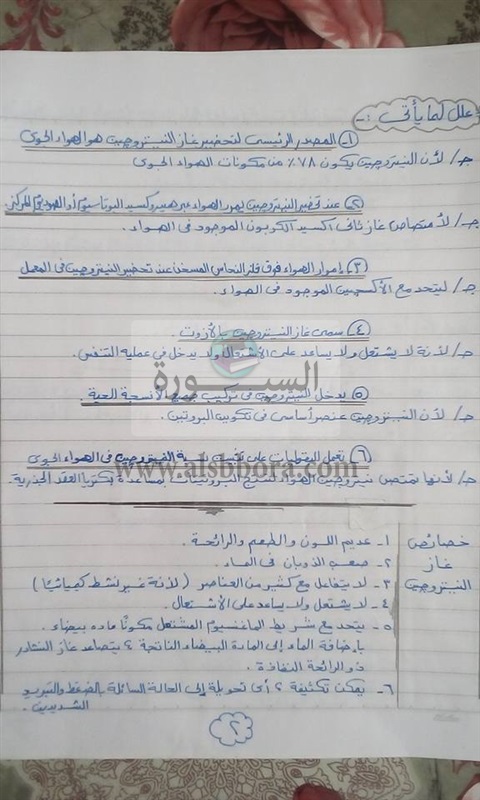 علل لما يأتى :-
١- المصدر الرئيسى لتحضير غاز النيتروجين هو الهواء الجوى
جـ/ لأن النيتروجين يكون ٧٨٪ من مكونات الهواء الجوى
٢- عند تحضير النيتروجين يمرر الهواء عبر هيدروكسيد البوتاسيوم أو الصوديوم المركز.
جـ/ لأمتصاص غاز ثانى اكسيد الكربون الموجود فى الهواء.
٣- إمرار الهواء فوق فلز النحاس المسخن عند تحضير النيتروجين فى المعمل
جـ/ ليتحد مع الأكسجين الموجود فى الهواء.
٤- سمى غاز النيتروجين بالأزوت.
جـ/ لأنة لا يشتعل ولا يساعد على الأشتعال ولا يدخل فى عملية التنفس.
السبورة
٥- يدخل النيتروجين فى تركيب جميع الأنسجة الحية.
جـ/ لأن النيتروجين عنصر أساسى فى تكوين البروتين.
٦- تعمل البقوليات على تثبيت نسبة النيتروجين فى الهواء الجوى
www.alsbbora.com
جـ/ لأنها تمتص نيتروجين الهواء لتصنع البروتينات بمساعدة بكتريا العقد الجذرية.
خصائص غاز النيتروجين
١- عديم اللون والطعم والرائحة.
٢- صعب الذوبان فى الماء.
٣- لا يتفاعل مع كثير من العناصر (لأنة غير نشط كيميائيًا)
٤- لا يشتعل ولا يساعد على الأشتعال.
٥- يتحد مع شريط الماغنسيوم المشتعل مكونًا ماده بيضاء.
بإضافة الماء إلى المادة البيضاء الناتجة ؟ يتصاعد غاز النشادر
ذو الرائحة النفاذة.
٦- يمكن تكثيفة ؟ أى تحويلة إلى الحالة السائلة بالضغط والتبريد
الشديدين.
٢